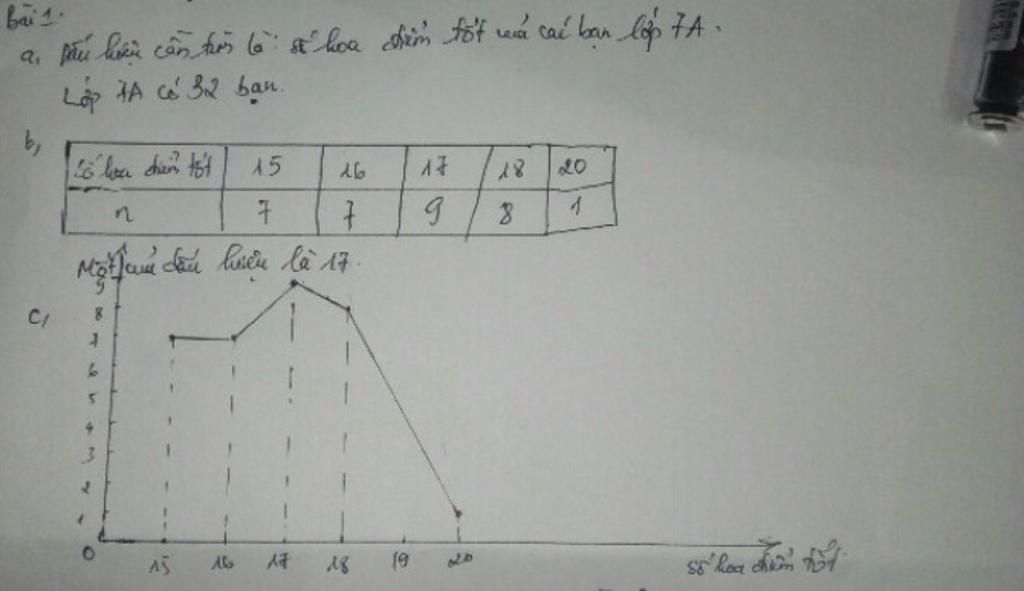 Bài 1.
a, Dấu hiệu cần tìm là: số hoa điểm tốt của các bạn lớp 7A.
Lớp 7A có 32 bạn.
b,
Số hoa điểm tốt 15 16 17 18 20
n 7 7 9 8 1
Mốt của dấu hiệu là 17.
c,
9
8
7
6
5
4
3
2
1
0 15 16 17 18 19 20 số hoa điểm tốt